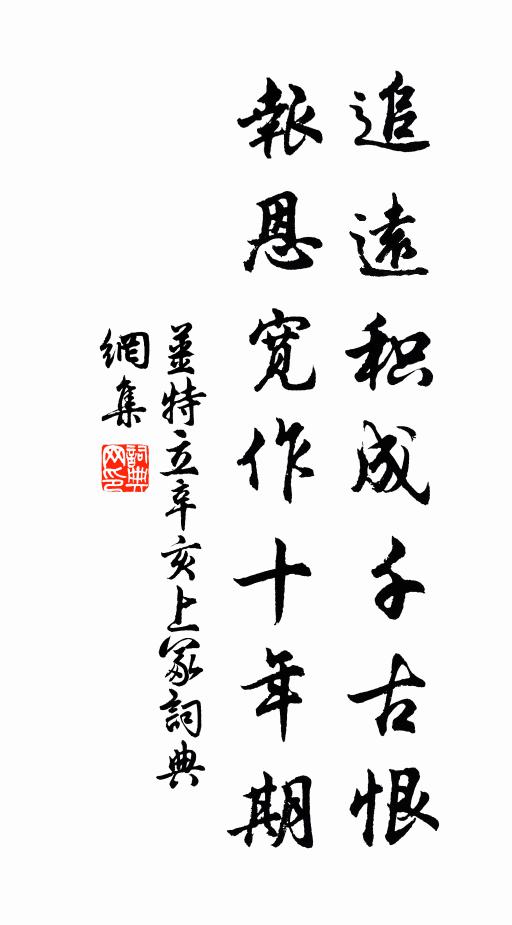 追遠积成千古恨
報恩寬作十年期
姜特立辛亥上冢詞典
網集
詞典網印